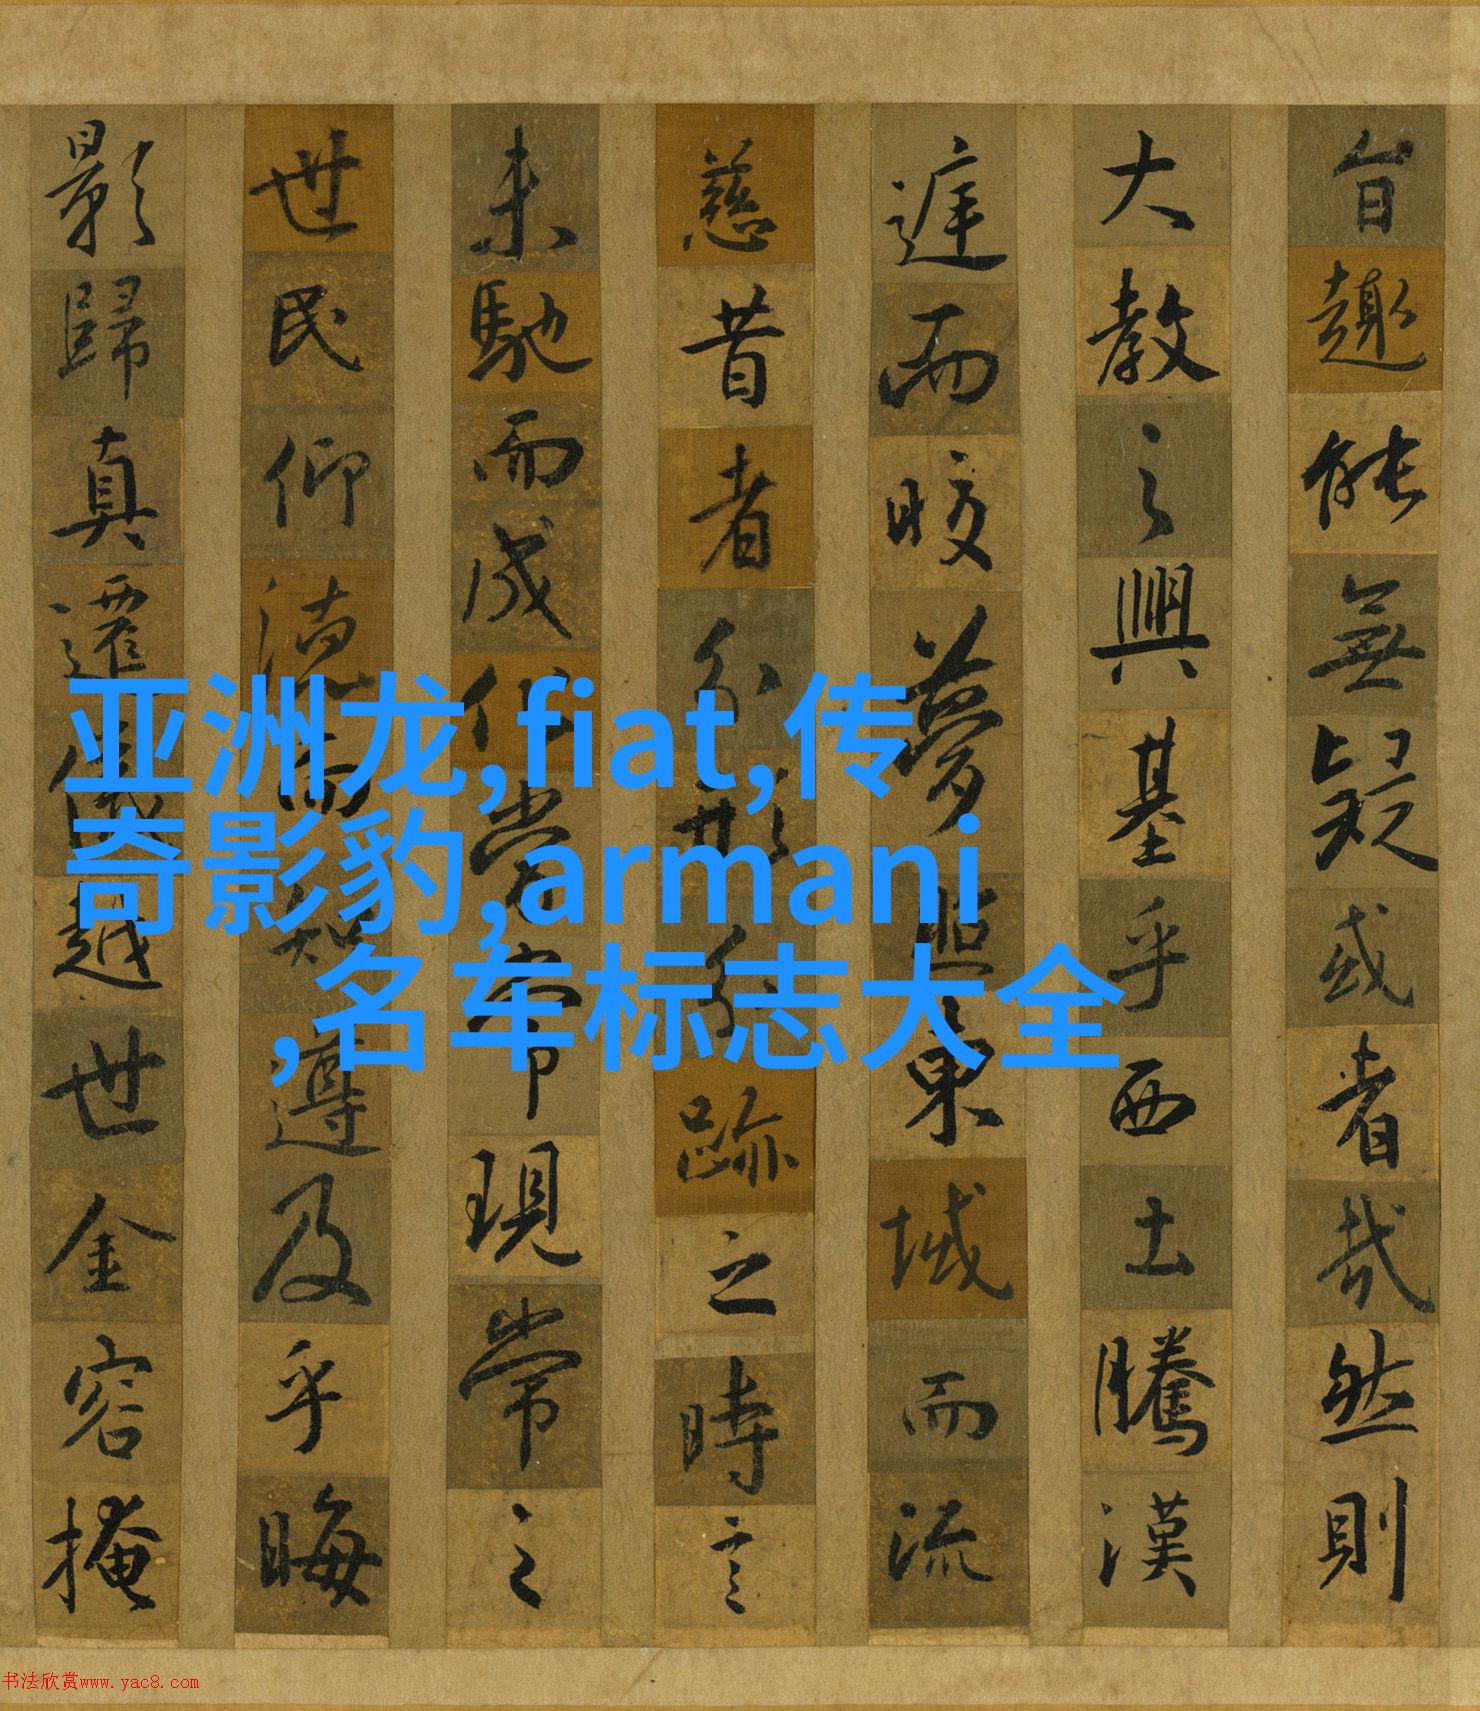 旨趣能無疑或者哉然則
大教之興基乎西土騰漢
庭而皎夢照東域而流
慈昔者分形分跡之時言
未馳而成化當常現常之
世民仰德而知遵及乎晦
影歸真遷儀越世金容掩
亚洲龙,fiat,传
奇影豹,armani
,名车标志大全
书法欣赏www.yac8.com